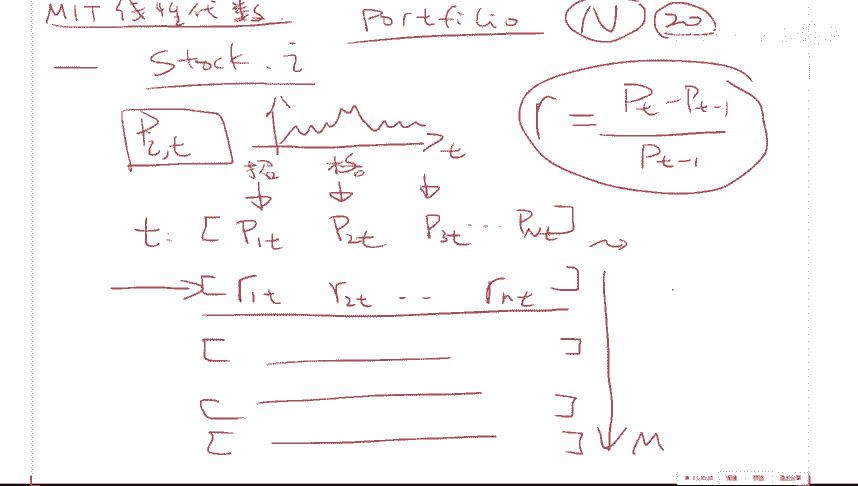 MIT 线性代数.
Portfilio N 20
— Stock. i
r = (Pt - Pt-1) / Pt-1
Pi,t
t
招
t: [ P1t P2t P3t ... PNt ]
[ r1t r2t .. rnt ]
[ ]
[ ]
[ ] M